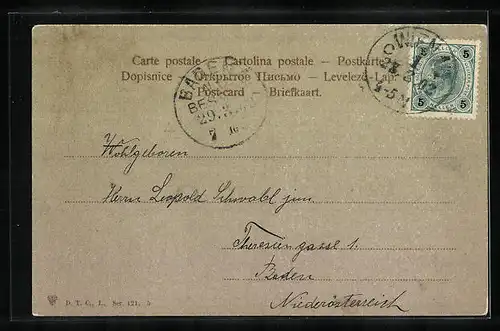 Carte postale — Cartolina postale — Postkarte
Dopisnice — Открытое Письмо — Levelező-Lap.
Post-card — Briefkaart.
WIEN
5 5
5 5
BADEN
Wohlgeboren
Herrn Leopold Schwabl jun
Theresiengasse 1.
Baden
Niederösterreich
D. T. C., L. Ser. 121. 5